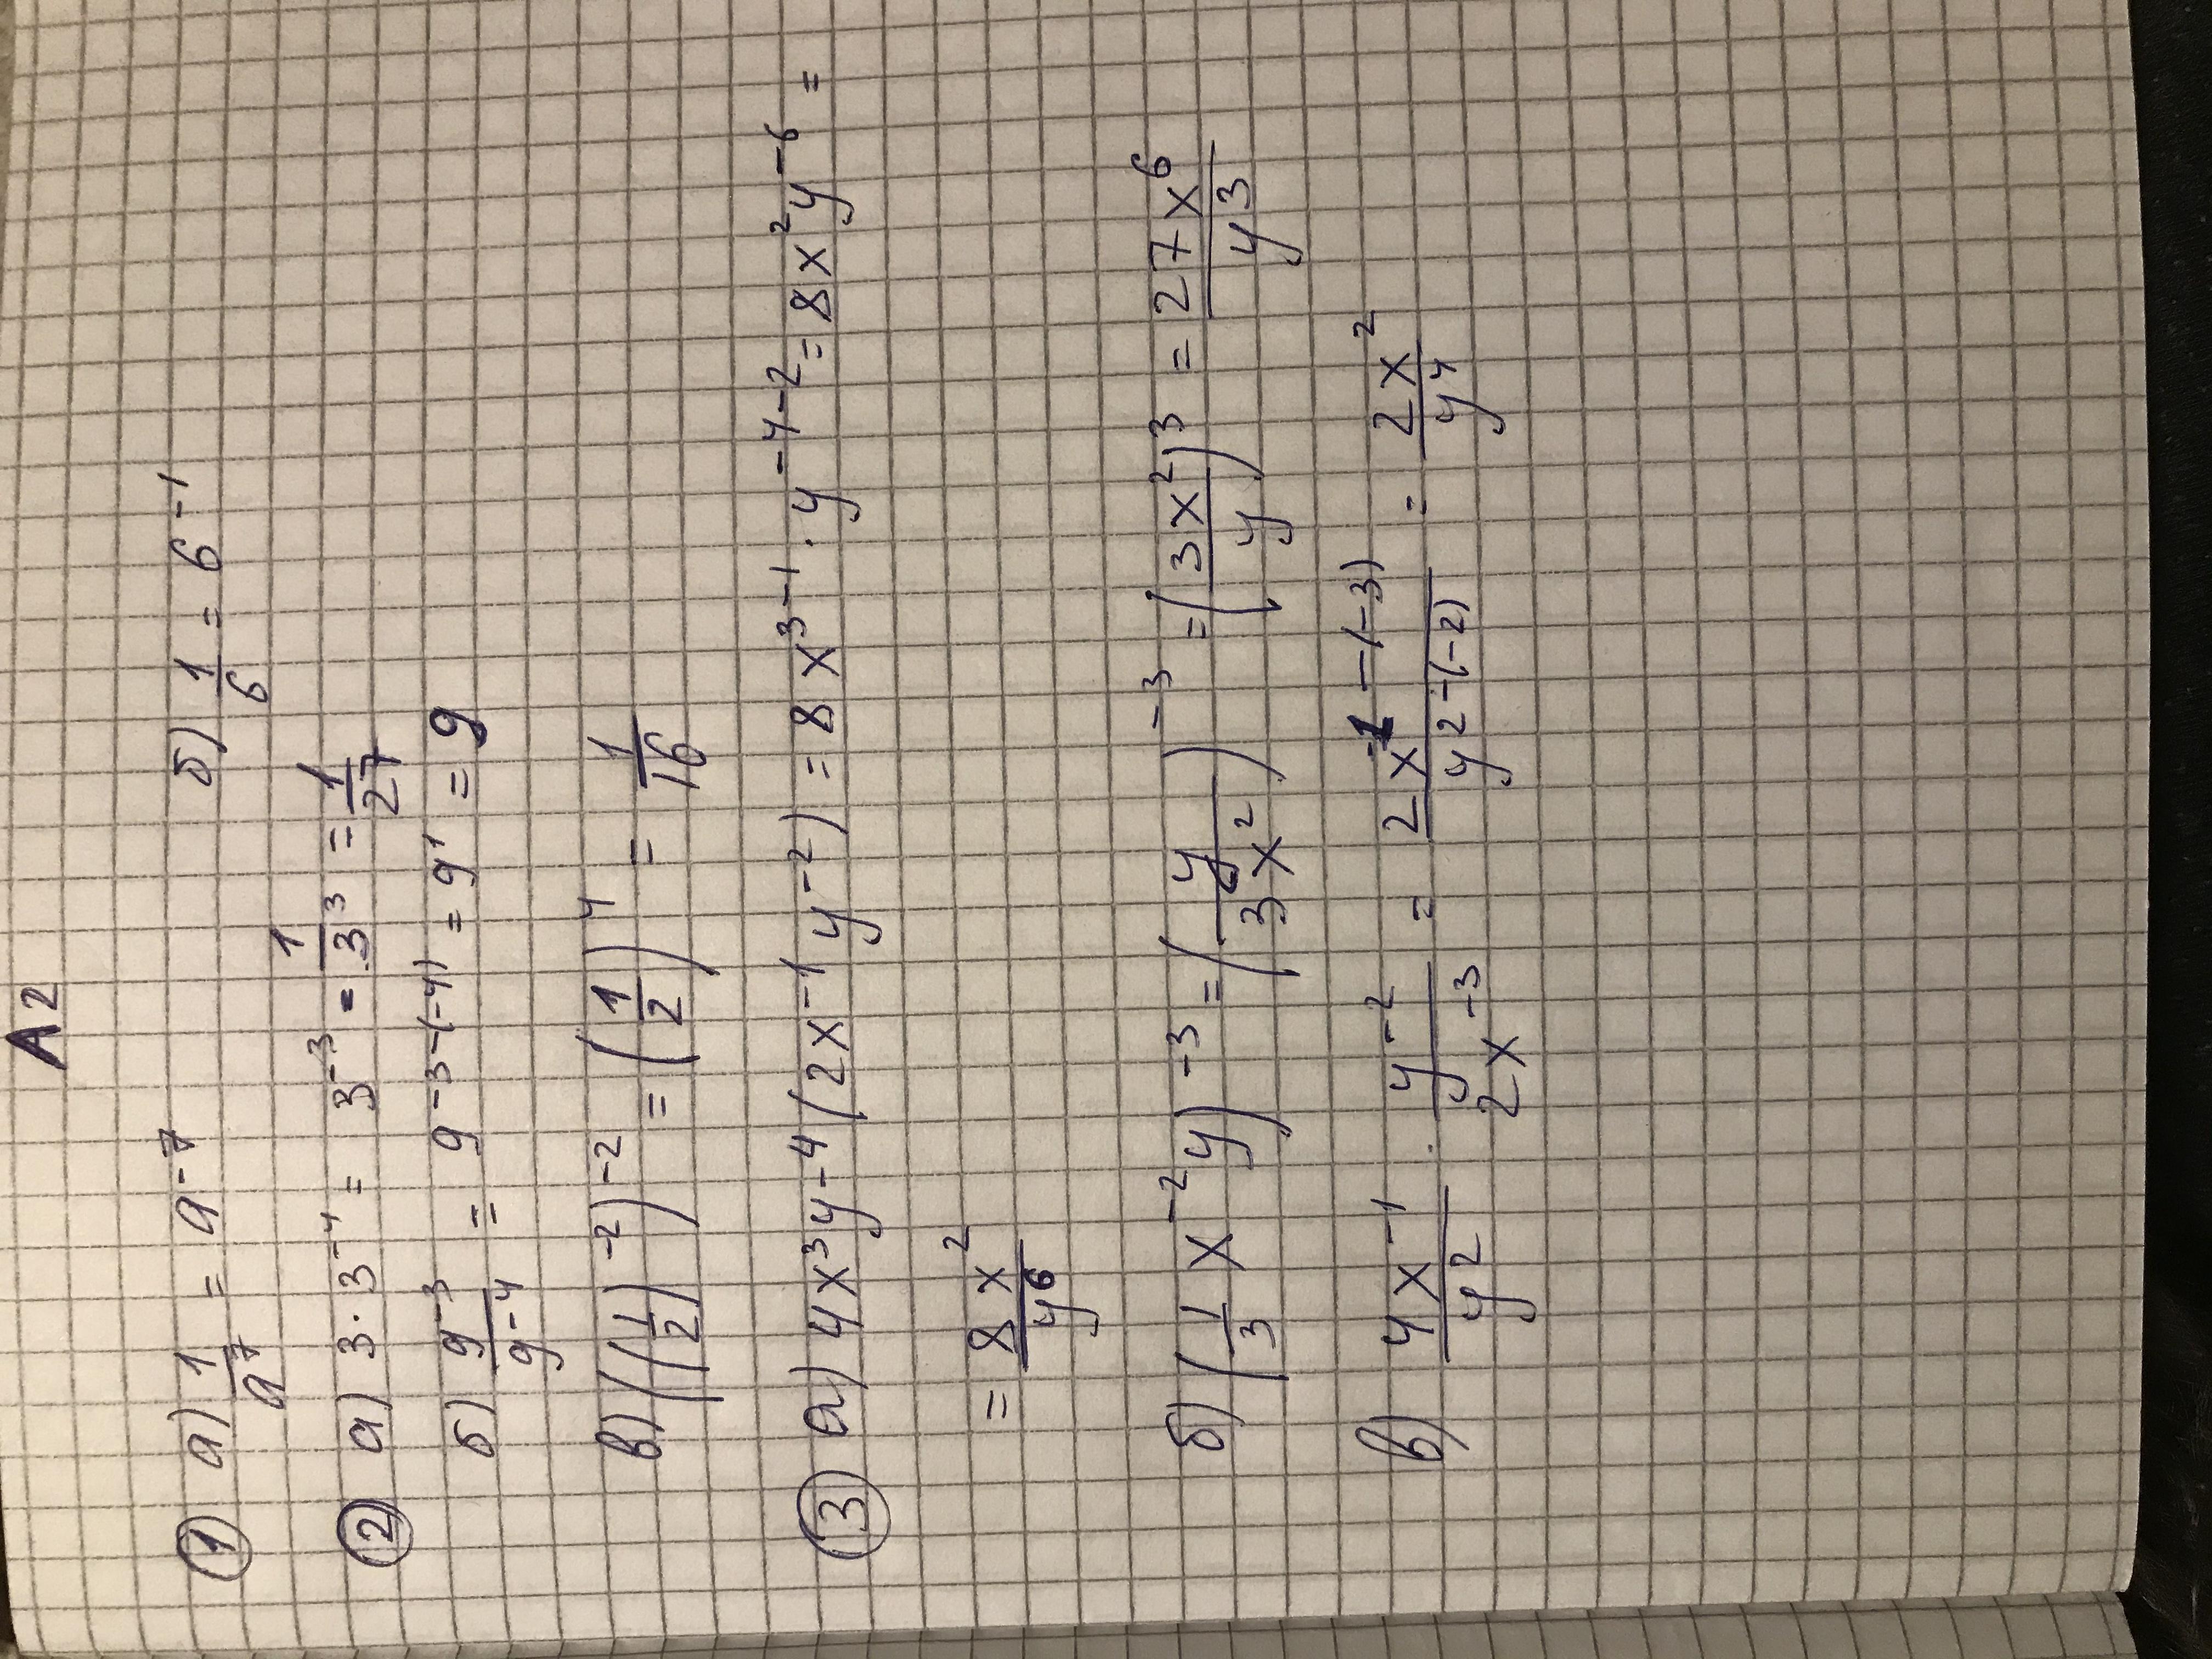 A2
① а) 1/a⁷ = a⁻⁷ б) 1/6 = 6⁻¹
② а) 3·3⁻⁴ = 3⁻³ = 1/3³ = 1/27
б) 9⁻³/9⁻⁴ = 9⁻³⁻⁽⁻⁴⁾ = 9¹ = 9
в) ((1/2)⁻²)⁻² = (1/2)⁴ = 1/16
③ а) 4x³y⁻⁴(2x⁻¹y⁻²) = 8x³⁻¹·y⁻⁴⁻² = 8x²y⁻⁶ =
= 8x²/y⁶
б) (1/3 x⁻²y)⁻³ = (y/3x²)⁻³ = (3x²/y)³ = 27x⁶/y³
в) 4x⁻¹/y² · y⁻²/2x⁻³ = 2x⁻¹⁻⁽⁻³⁾/y²⁻⁽⁻²⁾ = 2x²/y⁴